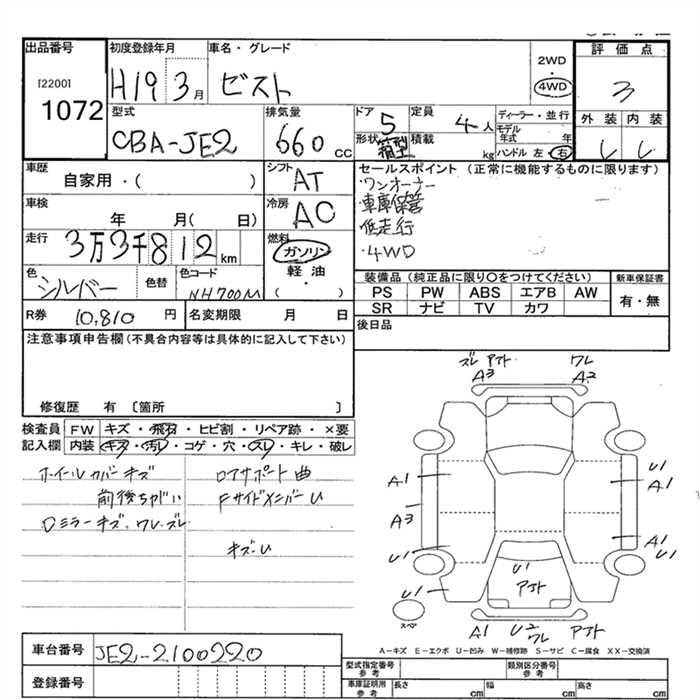 出品番号
[2200]
1072
初度登録年月
H19 3月
車名・グレード
ゼスト
2WD
・
4WD
評価点
3
型式
CBA-JE2
排気量
660 CC
ドア
5
定員
4人
ディーラー・並行
モデル年式 年
形状
箱型
積載
kg
ハンドル 左・右
外装 内装
車歴
自家用・( )
シフト
AT
セールスポイント (正常に機能するものに限ります)
・ワンオーナー
・車庫保管
・低走行
・4WD
車検
年 月( 日)
冷房
AC
走行
3万3千812km
燃料
ガソリン
軽油
・
( )
色
シルバー
色替
色コード
NH700M
装備品 (純正品に限り○をつけてください)
新車保証書
PS PW ABS エアB AW
SR ナビ TV カワ
有・無
R券 10,810 円
名変期限 月 日
後日品
注意事項申告欄(不具合内容等は具体的に記入して下さい)
修復歴 有 〔箇所 〕
検査員 FW キズ・飛石・ヒビ割・リペア跡・×要
記入欄 内装 キズ・汚レ・コゲ・穴・スレ・キレ・破レ
ホイールカバーキズ
前後ちがい
Dミラーキズ、ワレ、ズレ
ロアサポート曲
Fサイドメンバー U
キズ・U
ズレ アオト ワレ
A3 A2
A1
A3
U1
U1
U1
A1
A1
U1
U1
アオト
スペア
A1 U2 アオト
ワレ
A-キズ E-エクボ U-凹み W-補修跡 S-サビ C-腐食 XX-交換済
車台番号 JE2-2100220
登録番号
型式指定番号
参考
類別区分番号
参考
車庫証明用
参考
長さ cm
幅 cm
高さ cm